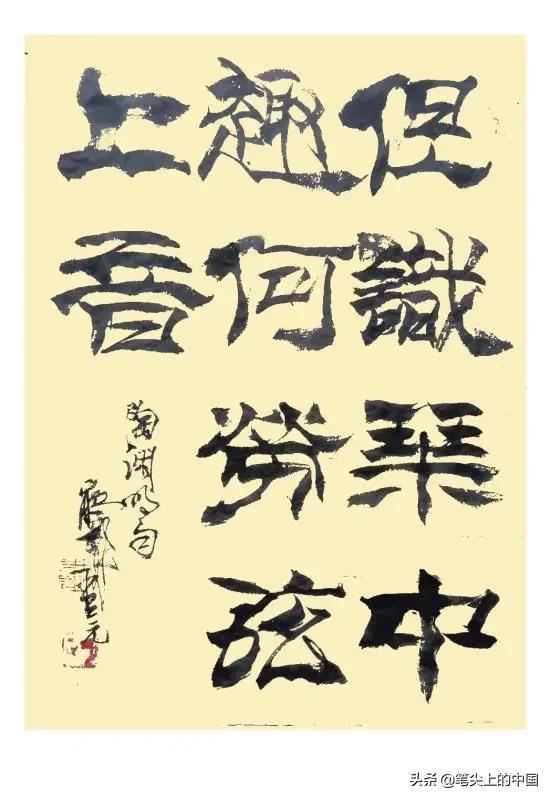 但識琴中
趣何勞弦
上音
陶渊明句
头条 @笔尖上的中国